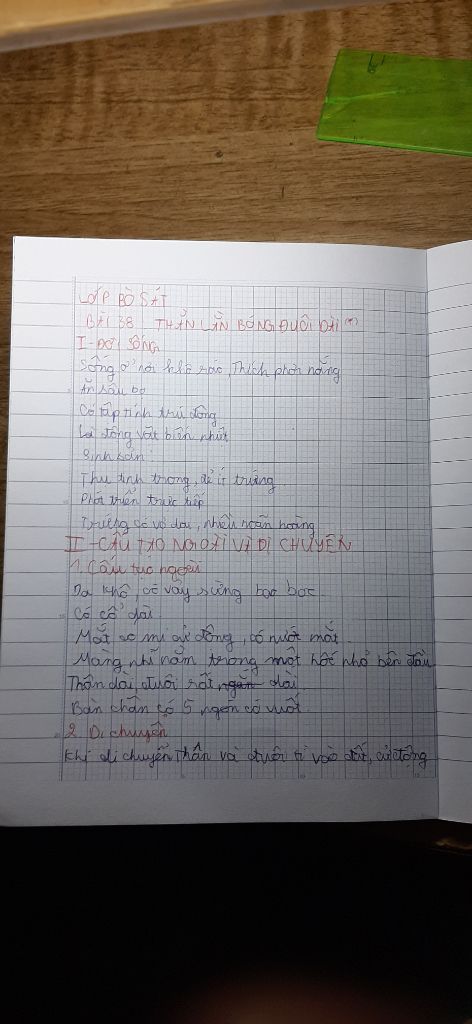 LỚP BÒ SÁT
BÀI 38 THẰN LẰN BÓNG ĐUÔI DÀI (*)
I - ĐỜI SỐNG
Sống ở nơi khô ráo, Thích phơi nắng
Ăn sâu bọ
Có tập tính trú đông
Là động vật biến nhiệt
Sinh sản:
Thụ tinh trong, đẻ ít trứng
Phát triển trực tiếp
Trứng có vỏ dai, nhiều noãn hoàng
II - CẤU TẠO NGOÀI VÀ DI CHUYỂN
1. Cấu tạo ngoài
Da khô, có vảy sừng bao bọc.
Có cổ dài.
Mắt có mi cử động, có nước mắt.
Màng nhĩ nằm trong một hốc nhỏ bên đầu
Thân dài, đuôi rất ngắn dài
Bàn chân có 5 ngón có vuốt.
2 Di chuyển
Khi di chuyển thân và đuôi tì vào đất, cử động